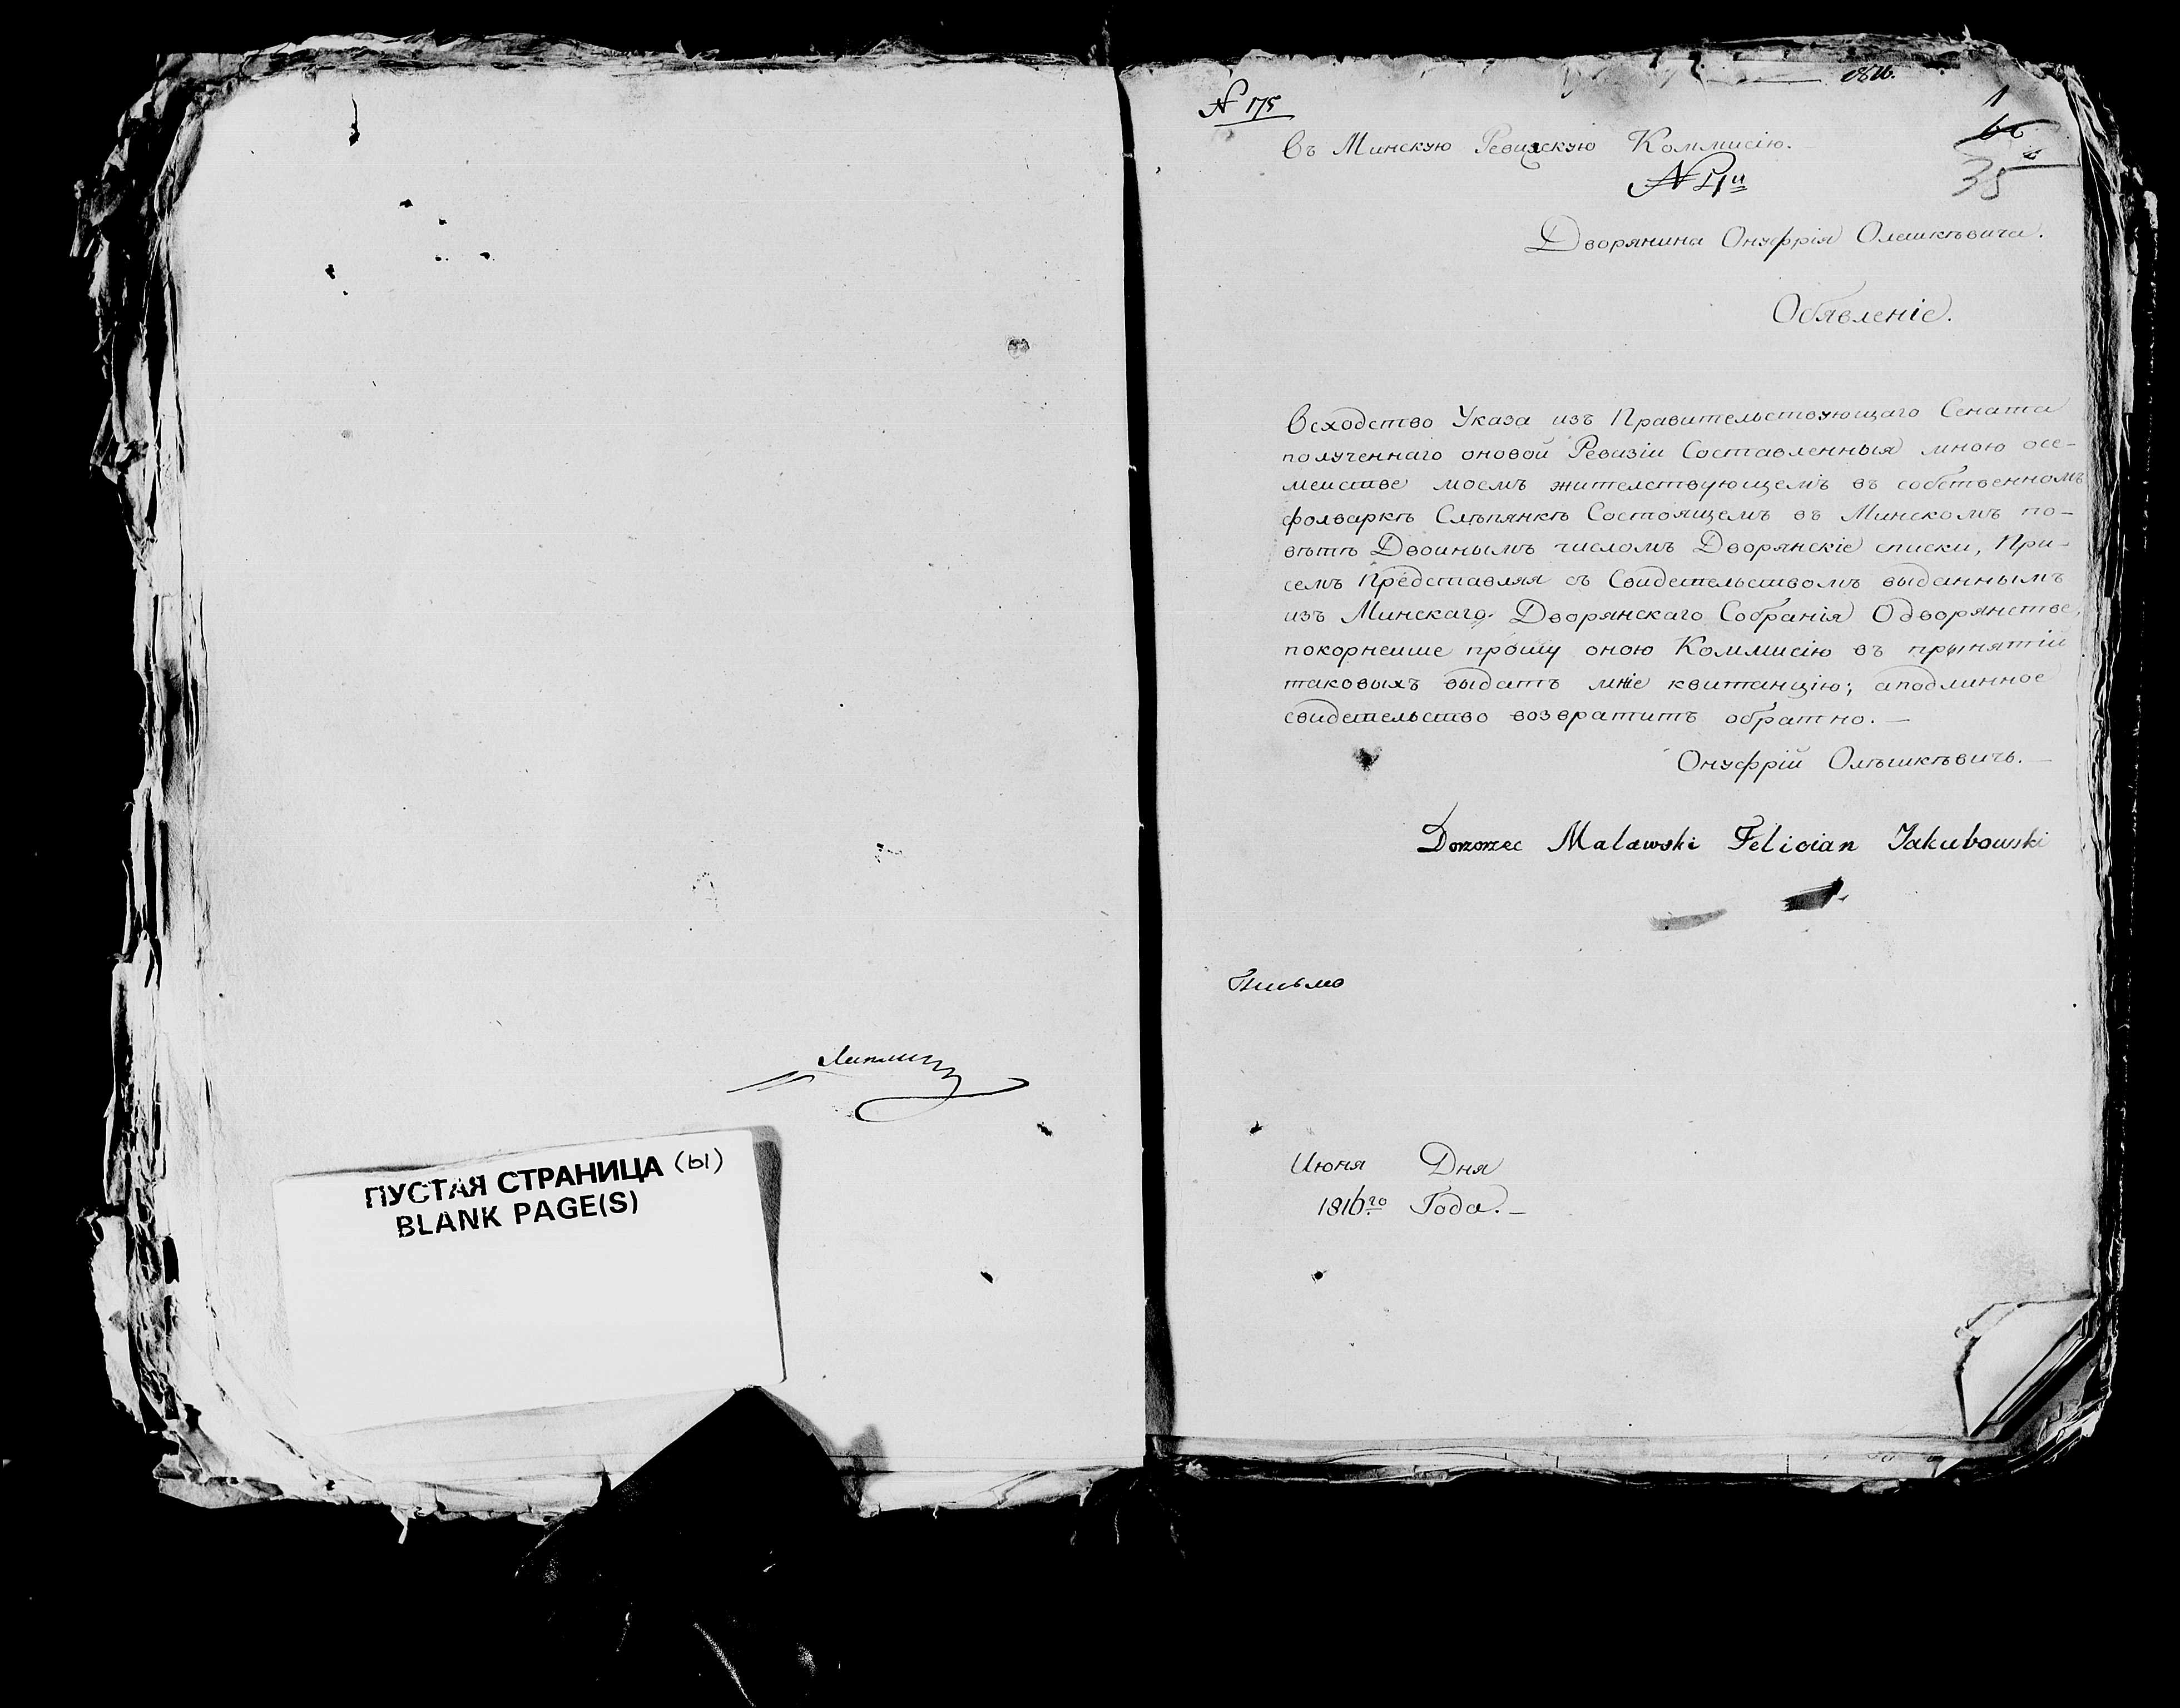 ПУСТАЯ СТРАНИЦА (ы)
BLANK PAGE(S)
1816.
N 175
1
35
Въ Минскую Ревизскую Коммисію.
Дворянина Онуфрія Олешкѣвича.
Обявленіе.
Всходство Указа изъ Правительствующаго Сената
полученнаго оновой Ревизіи Составленныя мною осе-
меистве моемъ жителствующемъ въ собственномъ
фолваркѣ Слѣпянкѣ Состоящемъ въ Минскомъ по-
вѣтѣ Двоинымъ числомъ Дворянскіе списки, При-
семъ Представляя съ Свидетельствомъ выданнымъ
изъ Минскаго Дворянскаго Собранія Одворянстве,
покорнеише прошу оною Коммисію въ прынятіи
таковыхъ выдатъ мнie квитанцію; аподлинное
свидетельство возвратитъ обратно. —
Онуфрій Олѣшкѣвичъ. —
Dozorzec Malawski Felician Jakubowski
Письмо
Июня Дня
1816го Года. —